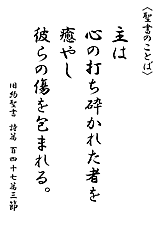 〈聖書のことば〉
主は
心の打ち砕かれた者を
癒やし
彼らの傷を包まれる。
旧約聖書 詩篇 百四十七篇三節